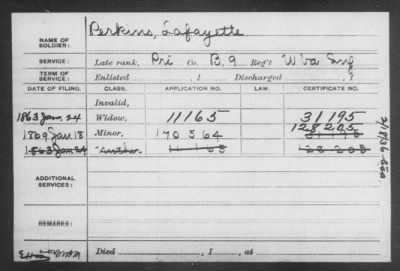 Perkins, Lafayette
NAME OF SOLDIER:
SERVICE: Late rank, Pri Co. B, 9 Reg't W Va Inf
TERM OF SERVICE: Enlisted , 1 Discharged , 1
DATE OF FILING. CLASS. APPLICATION NO. LAW. CERTIFICATE NO.
Invalid,
1863 Jan. 24 Widow, 11165 31195
128205
1869 Jan 18 Minor, 170564 31195
1863 Jan 24 11165 128205
ADDITIONAL SERVICES:
REMARKS:
Died , 1 , at